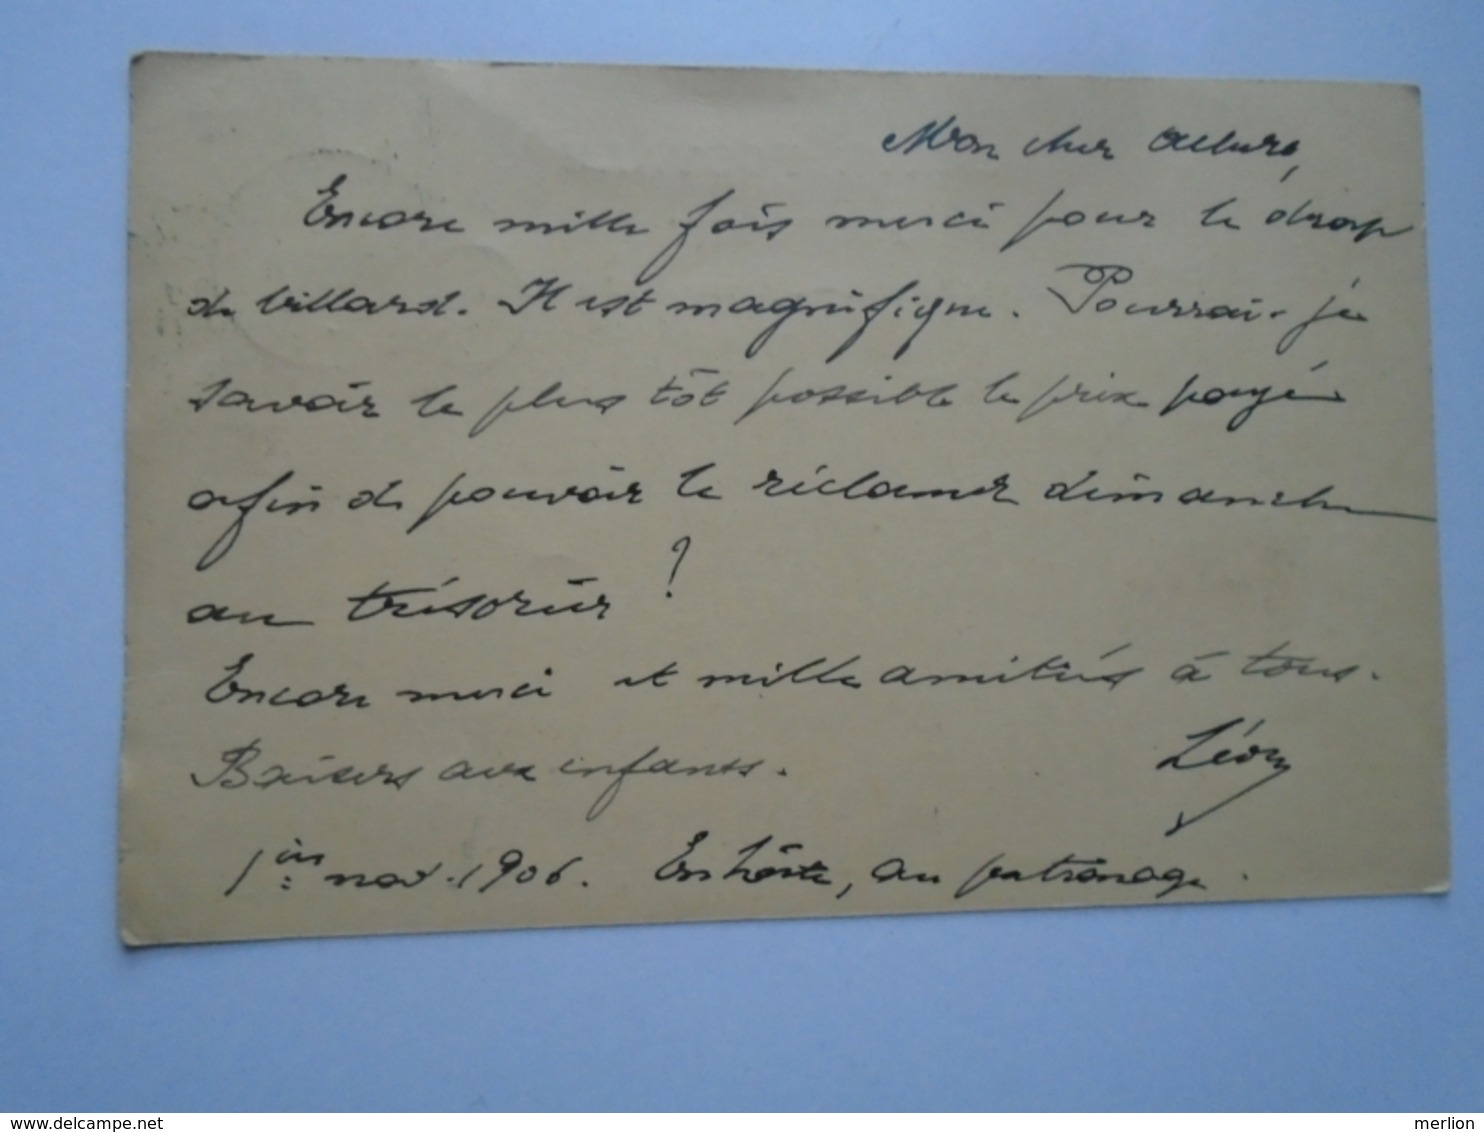 Mon cher
Encore mille fois merci pour le drap
de billard. Il est magnifique. Pourrai-je
savoir le plus tôt possible le prix payé
afin de pouvoir le réclamer dimanche
au trésorier ?
Encore merci et mille amitiés à tous.
Baisers aux enfants. Léon
1er nov. 1906. En hâte, au patronage.
delcampe.net
merlion